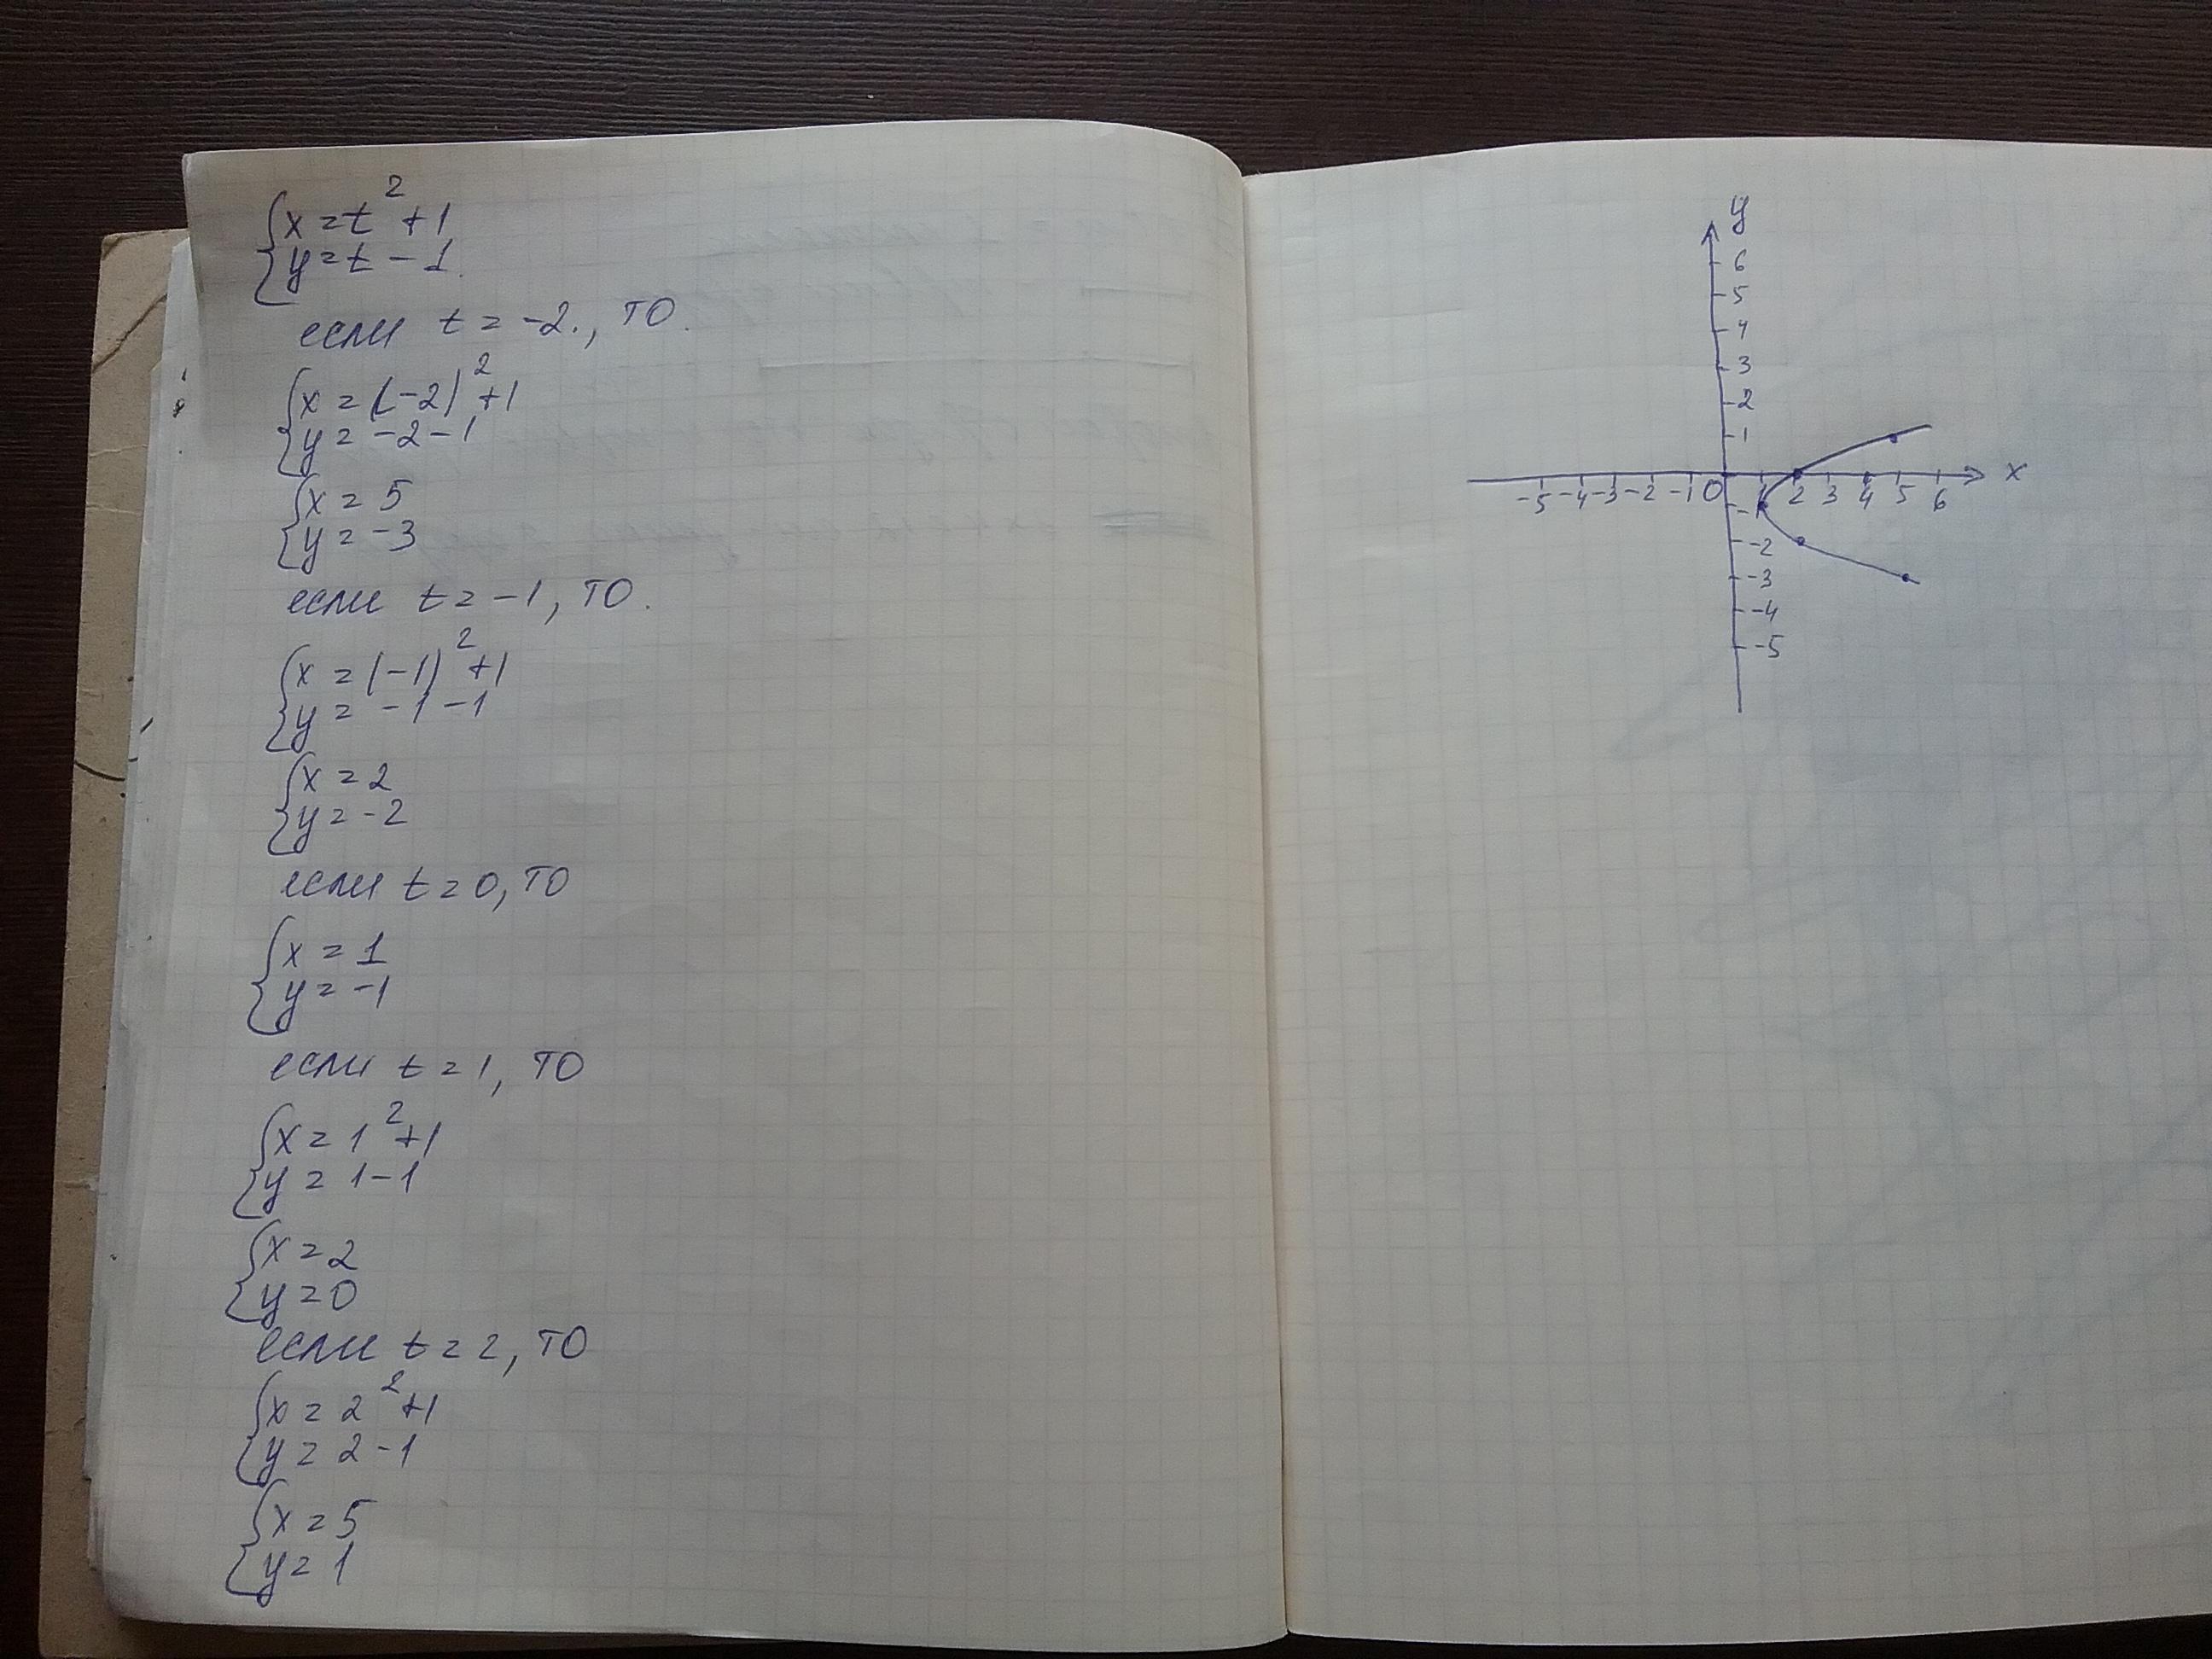 {x = t² + 1
{y = t - 1.
если t = -2., то.
{x = (-2)² + 1
{y = -2 - 1
{x = 5
{y = -3
если t = -1, то.
{x = (-1)² + 1
{y = -1 - 1
{x = 2
{y = -2
если t = 0, то
{x = 1
{y = -1
если t = 1, то
{x = 1² + 1
{y = 1 - 1
{x = 2
{y = 0
если t = 2, то
{x = 2² + 1
{y = 2 - 1
{x = 5
{y = 1
y
6
5
4
3
2
1
-5 -4 -3 -2 -1 0 1 2 3 4 5 6 x
-2
-3
-4
-5